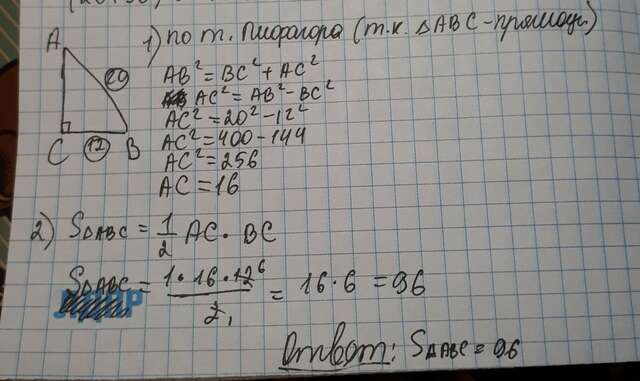 A
20
C 12 B
1) по т. Пифагора (т.к. △ABC-прямоуг.)
AB²=BC²+AC²
AC²=AB²-BC²
AC²=20²-12²
AC²=400-144
AC²=256
AC=16
2) S△ABC = 1/2 AC · BC
S△ABC = 1·16·12⁶/2₁ = 16·6 = 96
Ответ: S△ABC = 96